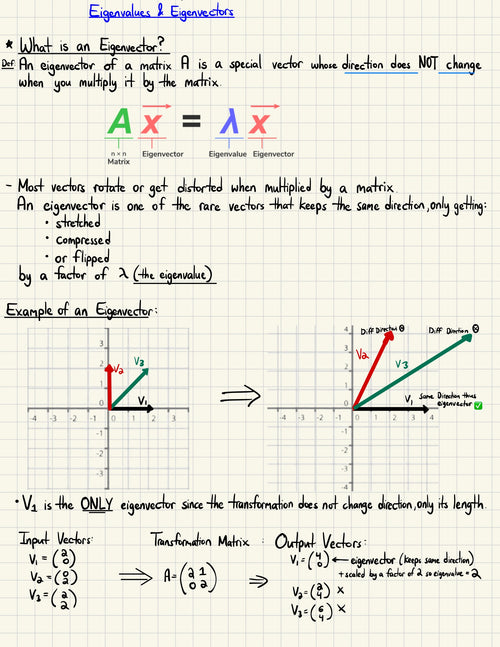 Eigenvalues & Eigenvectors
* What is an Eigenvector?
Def: An eigenvector of a matrix A is a special vector whose direction does NOT change
when you multiply it by the matrix.
A x = λ x
n×n Matrix Eigenvector Eigenvalue Eigenvector
- Most vectors rotate or get distorted when multiplied by a matrix.
An eigenvector is one of the rare vectors that keeps the same direction, only getting:
• stretched
• compressed
• or flipped
by a factor of λ (the eigenvalue)
Example of an Eigenvector:
3
2
1
0
-1
-2
-3
-4 -3 -2 -1 0 2 3
V2
V3
V1
⇒
4
3
2
1
0
-1
-2
-3
-4
-4 -3 -2 -1 0 1 2 3 4
Diff Direction ☹
Diff Direction ☹
V2
V3
V1
Same Direction thus
eigenvector ✅
• V1 is the ONLY eigenvector since the transformation does not change direction, only its length.
Input Vectors:
V1 = (2 0)
V2 = (0 2)
V3 = (2 2)
⇒
Transformation Matrix :
A = (2 1
0 2)
⇒
Output Vectors:
V1 = (4 0) ← eigenvector (keeps same direction)
+ scaled by a factor of 2 so eigenvalue = 2
V2 = (2 4) x
V3 = (6 4) x